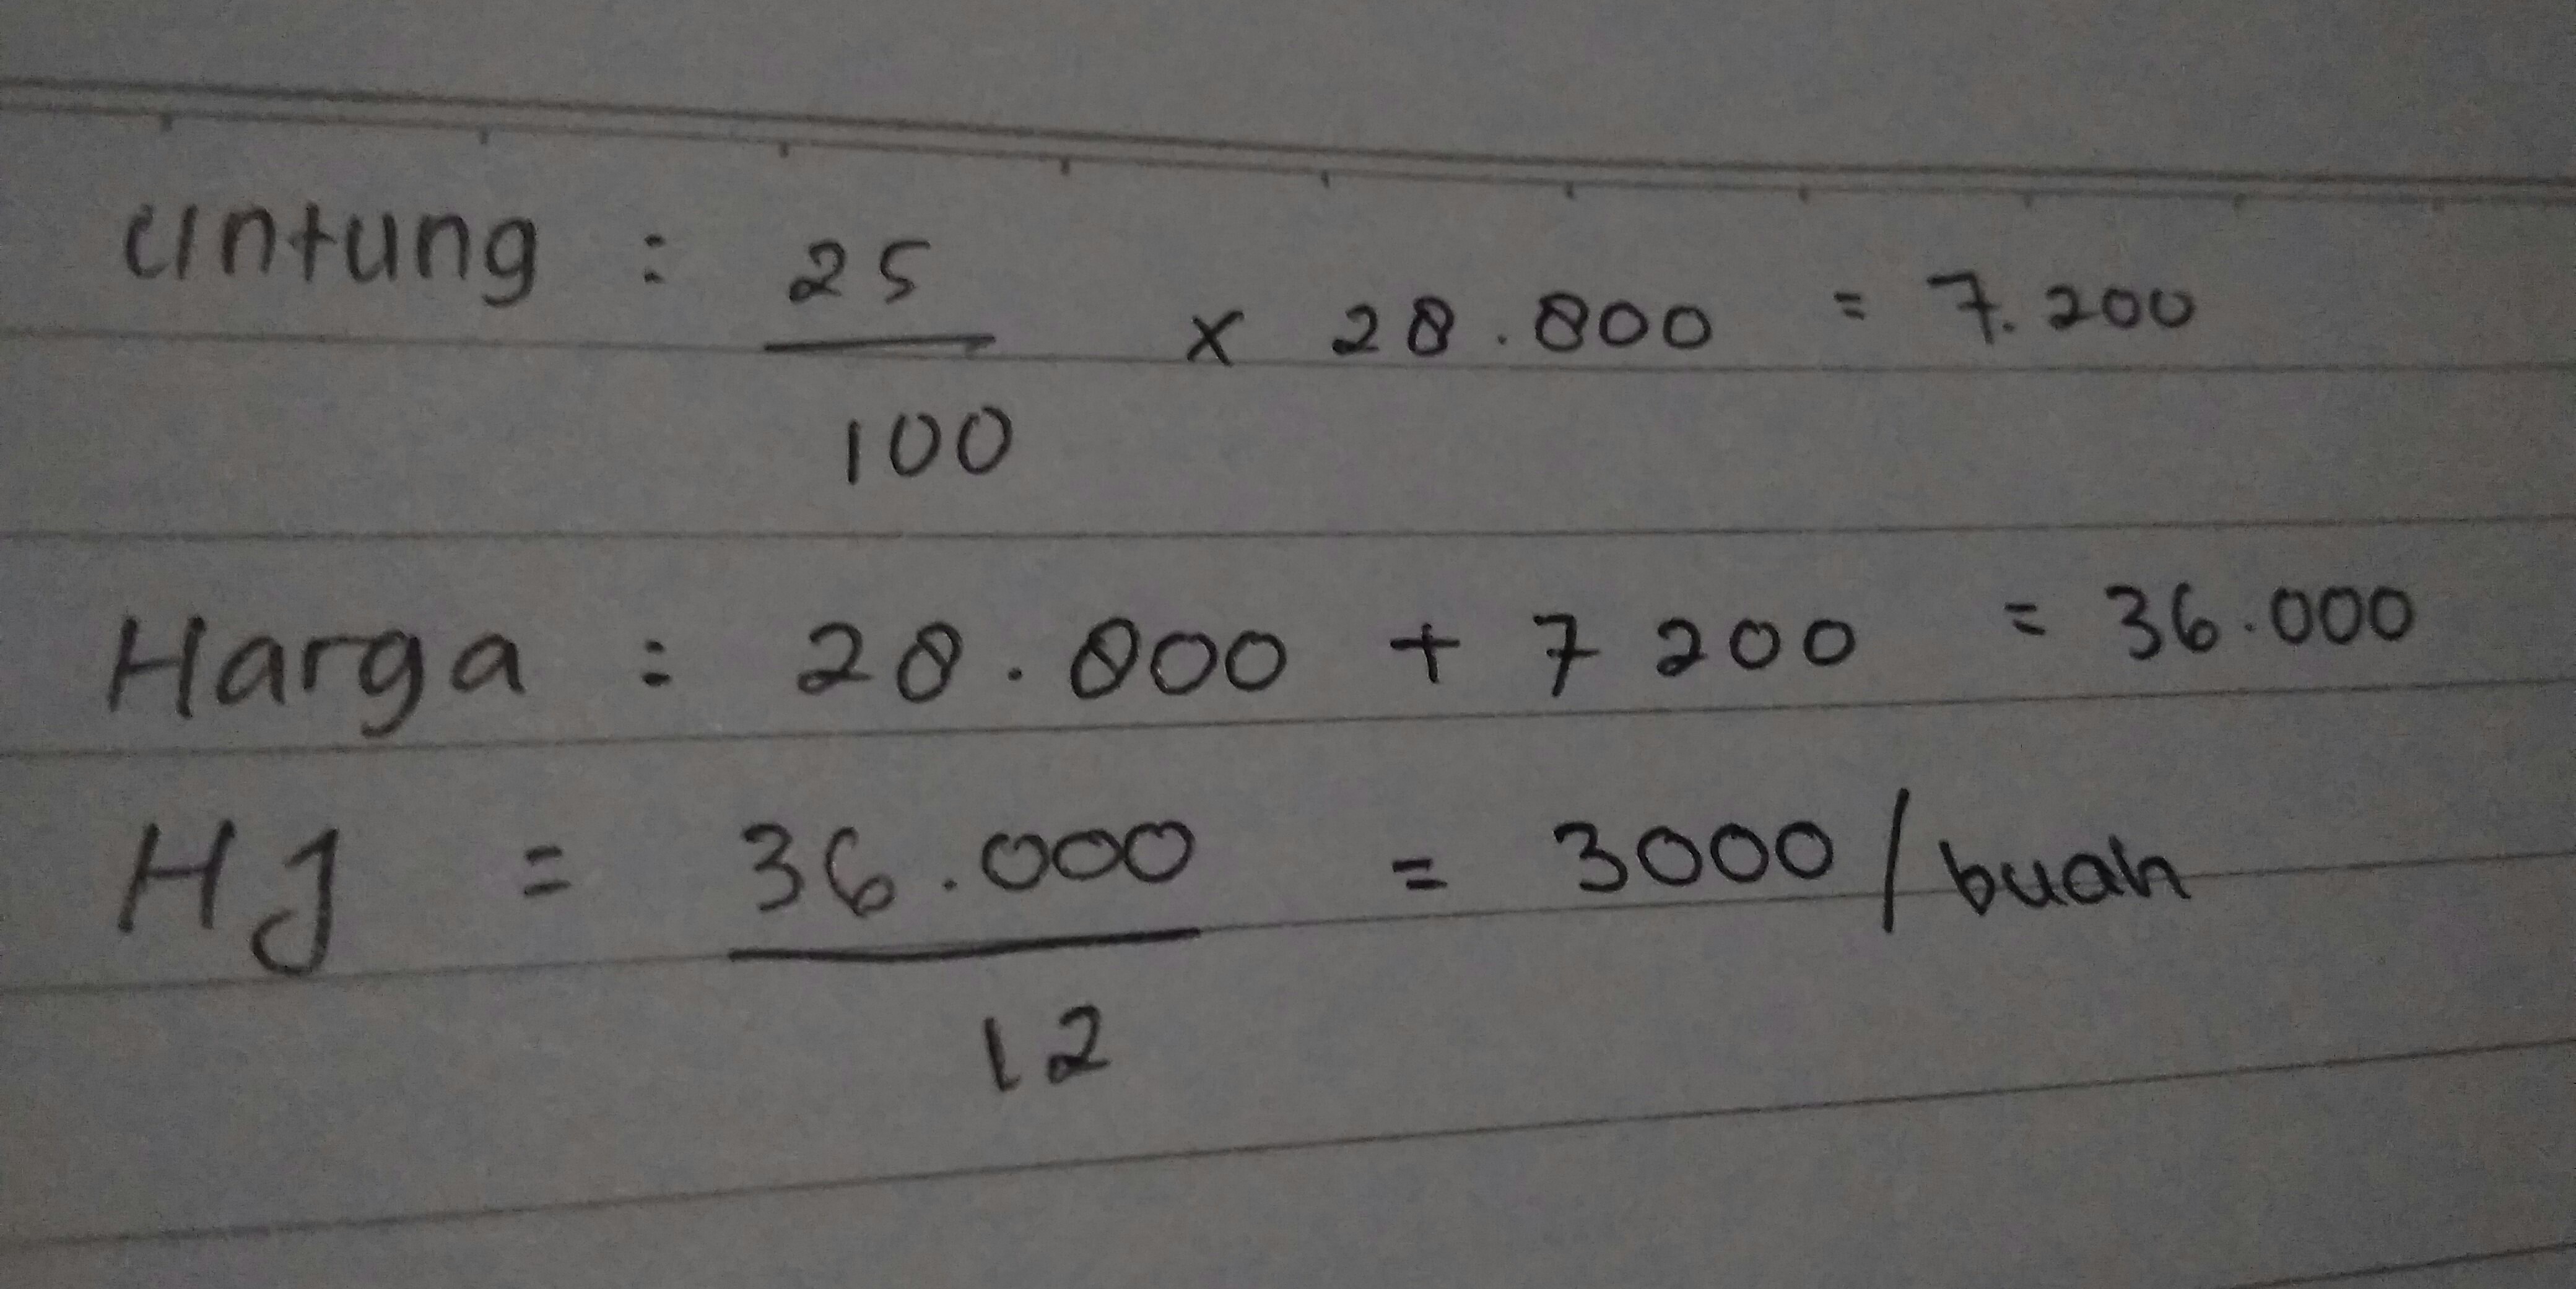 Untung : 25/100 x 28.800 = 7.200
Harga : 28.800 + 7 200 = 36.000
HJ = 36.000/12 = 3000/buah